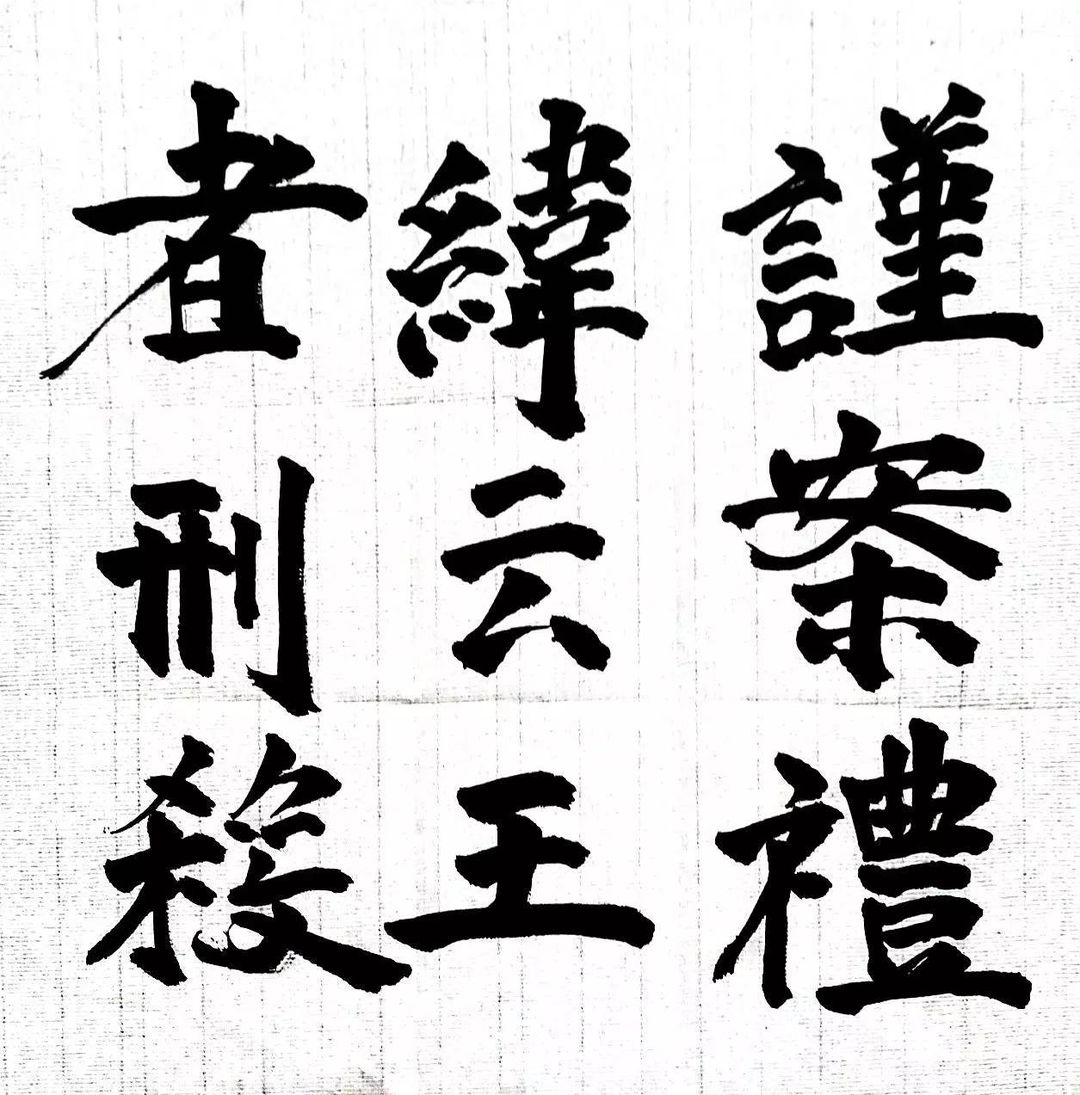 謹案禮
緯云王
者刑殺